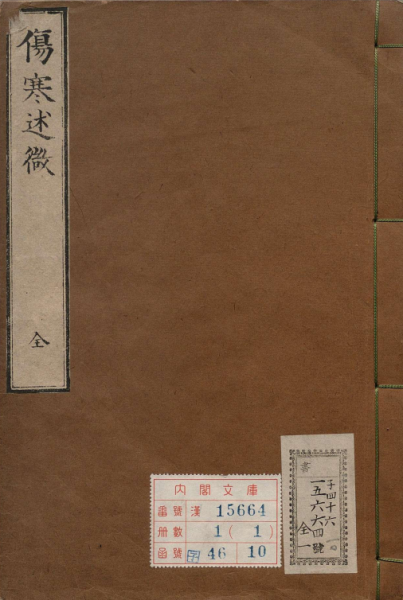 傷寒述微
全
內閣文庫
番號 漢 15664
冊數 1(1)
函號 子 46 10
書
子四十六
一五六六四號
全一